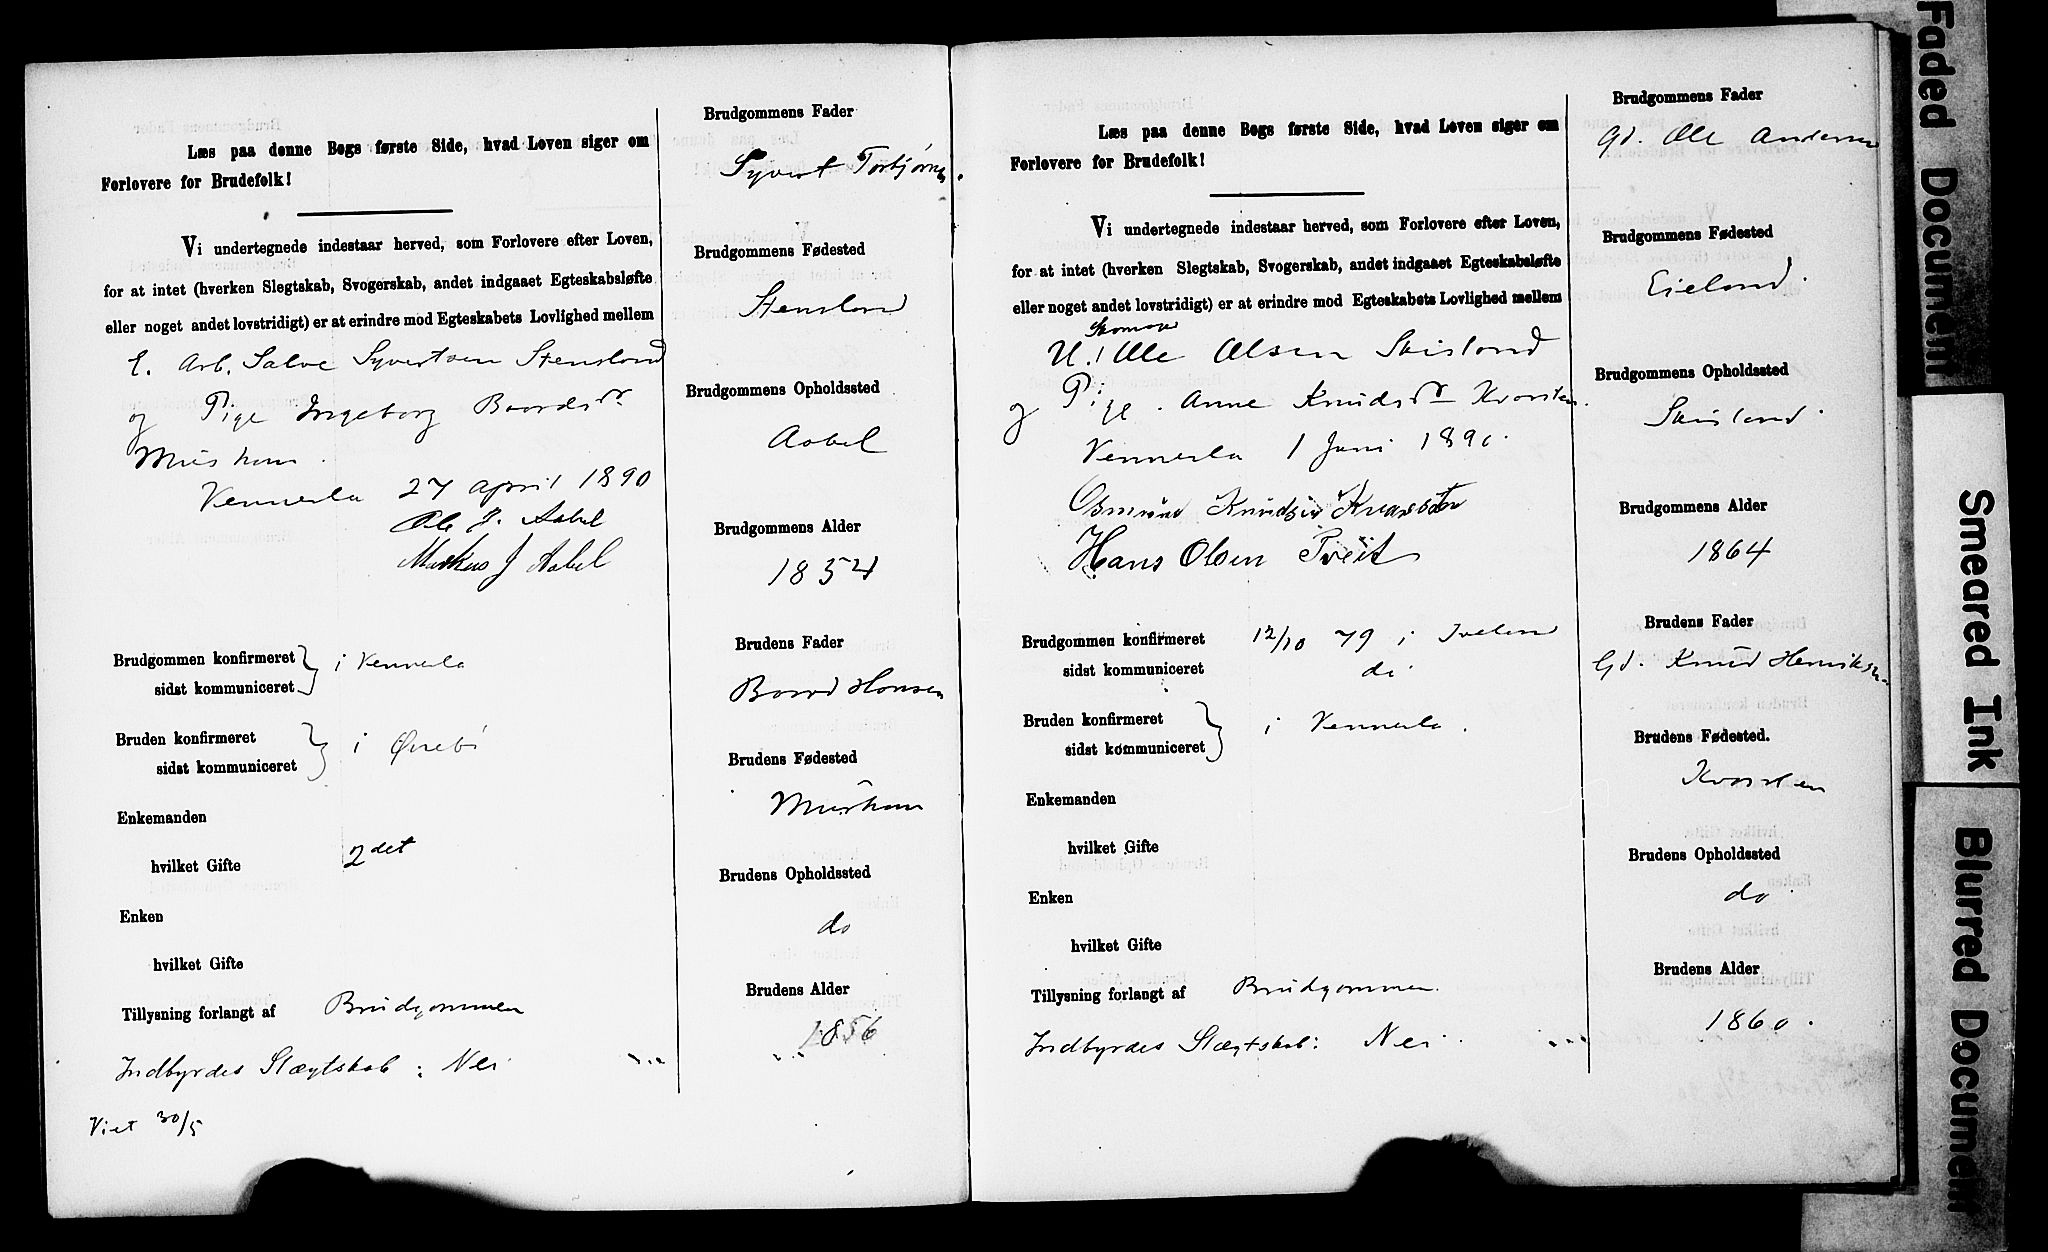 Læs paa denne Bogs første Side, hvad Loven siger om
Forlovere for Brudefolk!
Vi undertegnede indestaar herved, som Forlovere efter Loven,
for at intet (hverken Slegtskab, Svogerskab, andet indgaaet Egteskabsløfte
eller noget andet lovstridigt) er at erindre mod Egteskabets Lovlighed mellem
E. Arb. Salve Syvertsen Stensland
og Pige Ingeborg Baardsdr
Mushom.
Vennesla 27 april 1890
Ole J. Aabel
Markus J Aabel
Brudgommen konfirmeret } i Vennesla
sidst kommuniceret
Bruden konfirmeret } i Øvrebø
sidst kommuniceret
Enkemanden
hvilket Gifte 2det
Enken
hvilket Gifte
Tillysning forlangt af Brudgommen
Indbyrdes Slægtskab : Nei
Viet 30/5
Brudgommens Fader
Syvert Torbjørns.
Brudgommens Fødested
Stensland
Brudgommens Opholdssted
Aabel
Brudgommens Alder
1854
Brudens Fader
Baard Hansen
Brudens Fødested
Mushom
Brudens Opholdssted
do
Brudens Alder
1856
Læs paa denne Bogs første Side, hvad Loven siger om
Forlovere for Brudefolk!
Vi undertegnede indestaar herved, som Forlovere efter Loven,
for at intet (hverken Slegtskab, Svogerskab, andet indgaaet Egteskabsløfte
eller noget andet lovstridigt) er at erindre mod Egteskabets Lovlighed mellem
Skomager
U. Ole Olsen Skisland
og Pige. Anne Knudsdr Kvarsten.
Vennesla 1 Juni 1890.
Osmund Knudsen Kvarsten
Hans Olsen Tveit
Brudgommen konfirmeret 12/10 79 i Iveland
sidst kommuniceret do
Bruden konfirmeret } i Vennesla.
sidst kommuniceret
Enkemanden
hvilket Gifte
Enken
hvilket Gifte
Tillysning forlangt af Brudgommen.
Indbyrdes Slægtskab: Nei.
Brudgommens Fader
Gd. Ole Andersen
Brudgommens Fødested
Eieland.
Brudgommens Opholdssted
Skisland.
Brudgommens Alder
1864
Brudens Fader
Gd. Knud Henriksen
Brudens Fødested.
Kvarsten
Brudens Opholdssted
do
Brudens Alder
1860.
Faded Document
Smeared Ink
Blurred Document